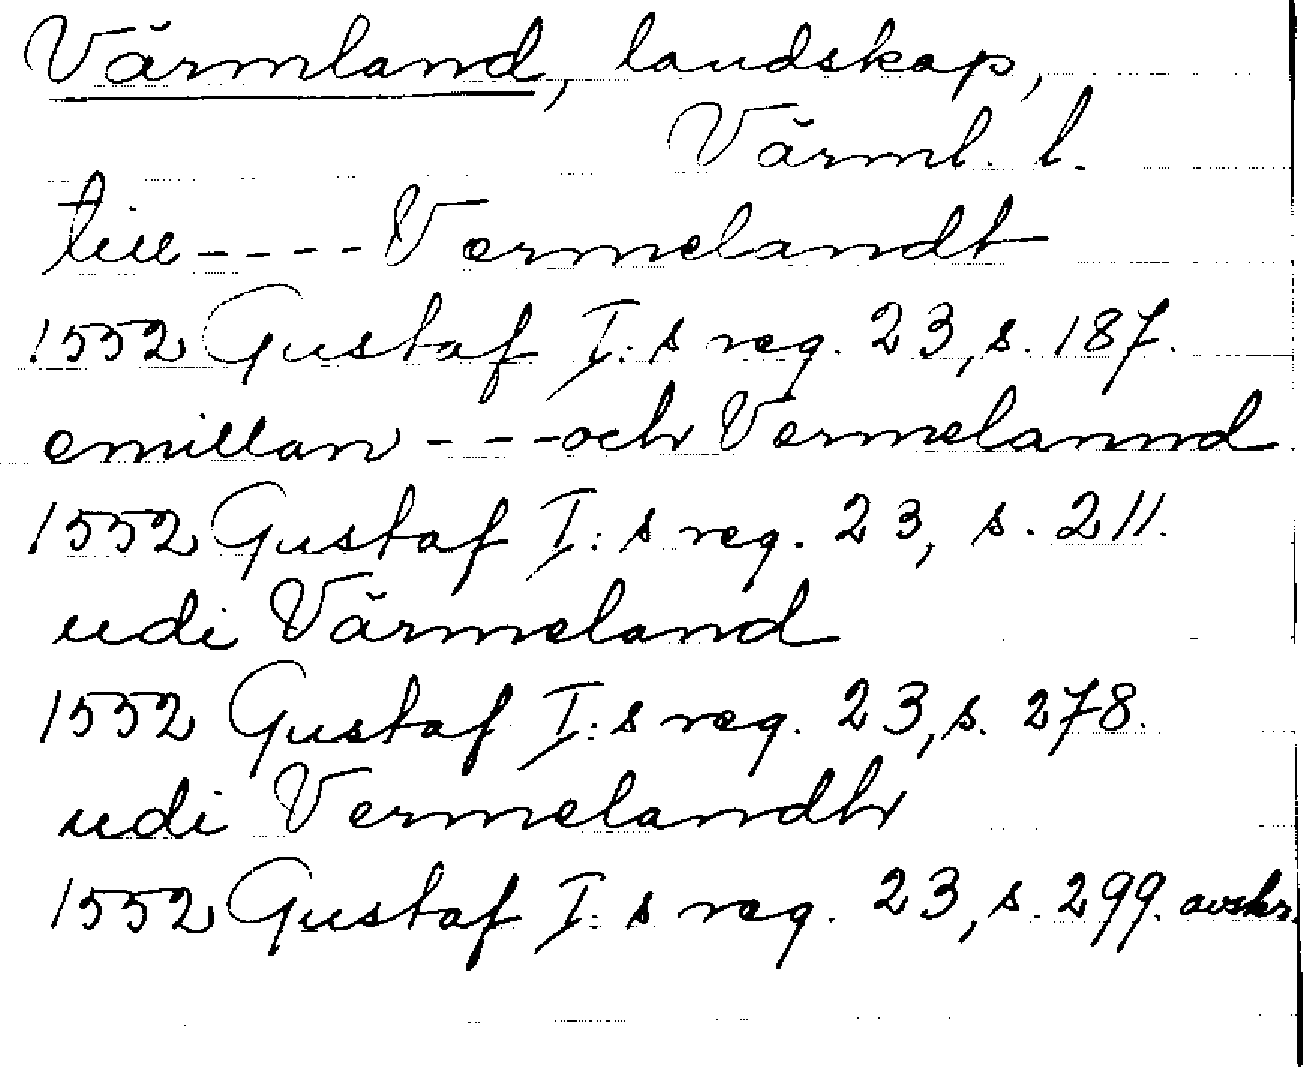 Värmland, landskap,
Värml. l.
till - - - - Vermelandt
1552 Gustaf I:s reg. 23, s. 187.
emillan - - - och Vermelannd
1552 Gustaf I:s reg. 23, s. 211.
udi Värmeland
1552 Gustaf I:s reg. 23, s. 278.
udi Vermelandh
1552 Gustaf I:s reg. 23, s. 299. avskr.